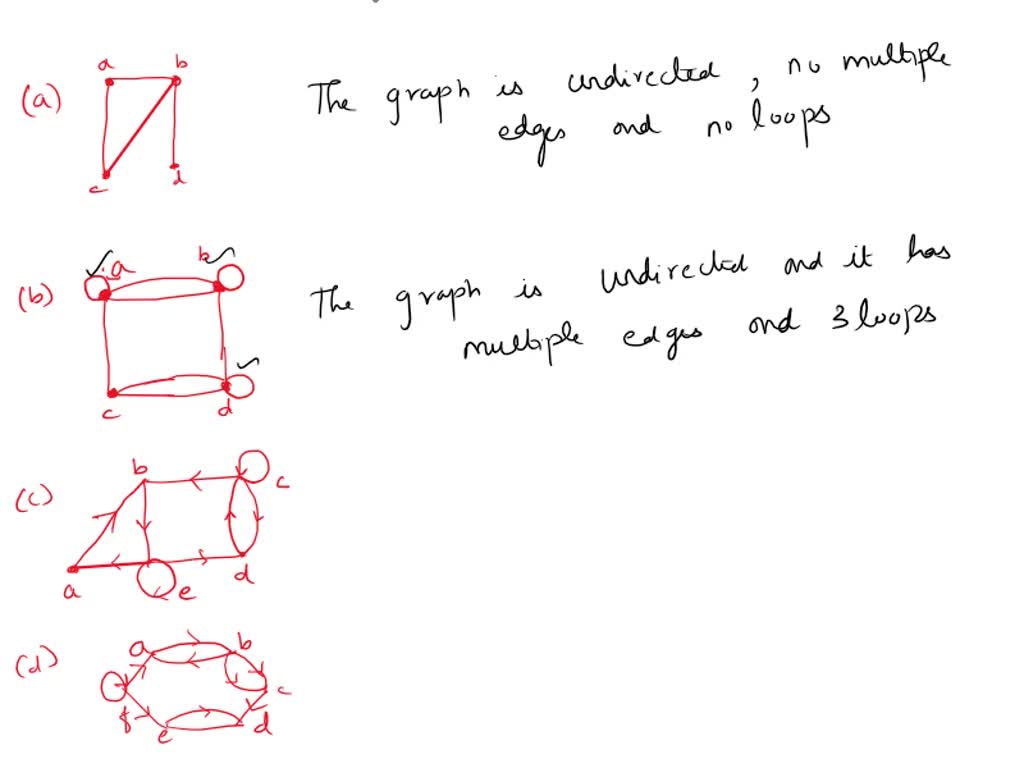 (a)
a b
The graph is undirected, no multiple
edges and no loops
c d
(b)
a b
The graph is undirected and it has
multiple edges and 3 loops
c d
(c)
b c
a e d
(d)
a b
f c
e d